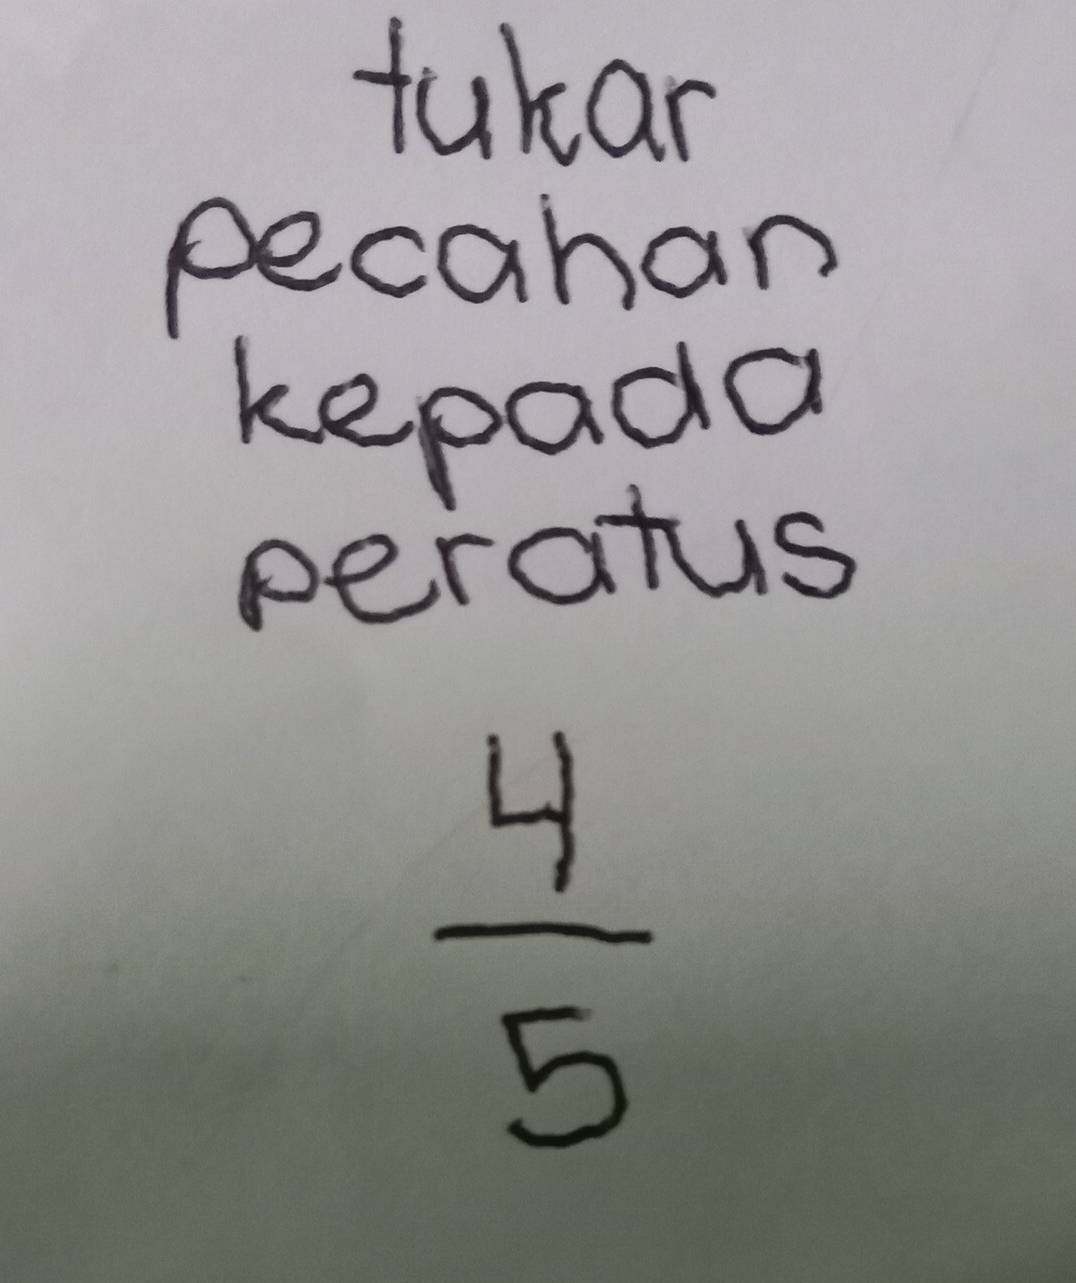 tukar
pecahan
kepada
peratus
4
5